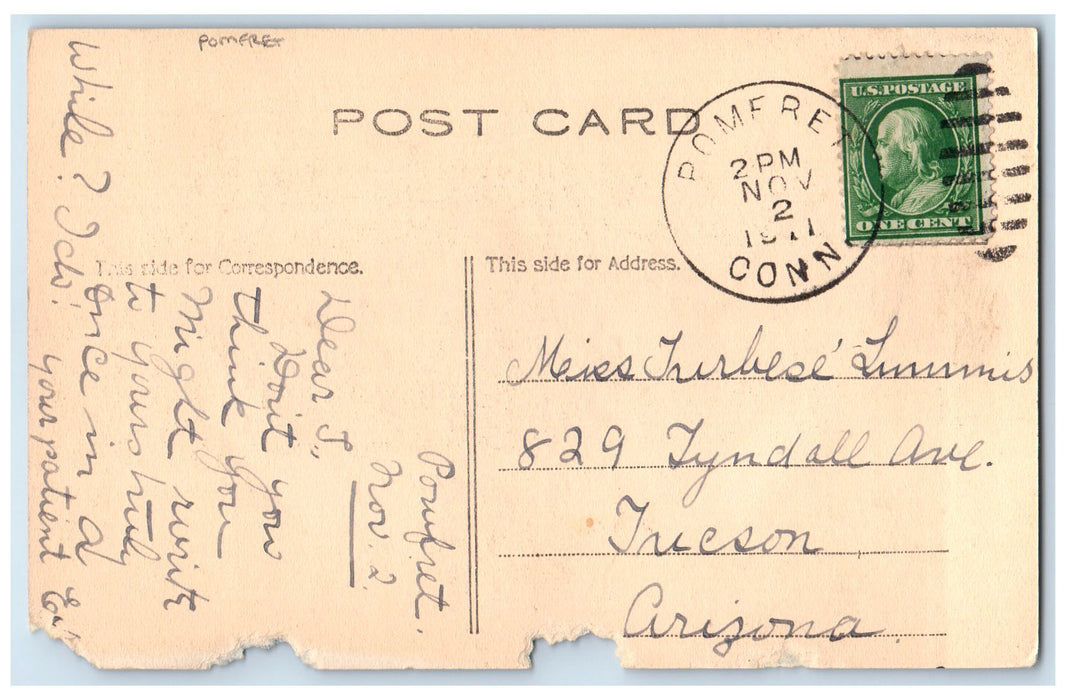 POMFRET
POST CARD
POMFRET
2 PM
NOV
2
1911
CONN.
U.S. POSTAGE
ONE CENT
This side for Correspondence.
This side for Address.
Miss Turbesé Lummis
829 Tyndall Ave.
Tucson
Arizona.
Pomfret.
Nov. 2.
Dear T.,
Don't you
think you
might write
to yours truly
once in a
while? Ich!
your patient